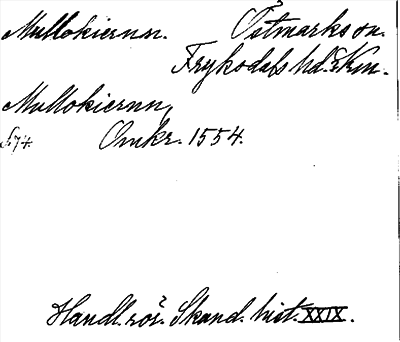 Mullokiernn. Östmarks sn.
Fryksdals hd. Skm.
Mullokiernn,
S. 74. Omkr. 1554.
Handl. rör. Skand. hist. XXIX.